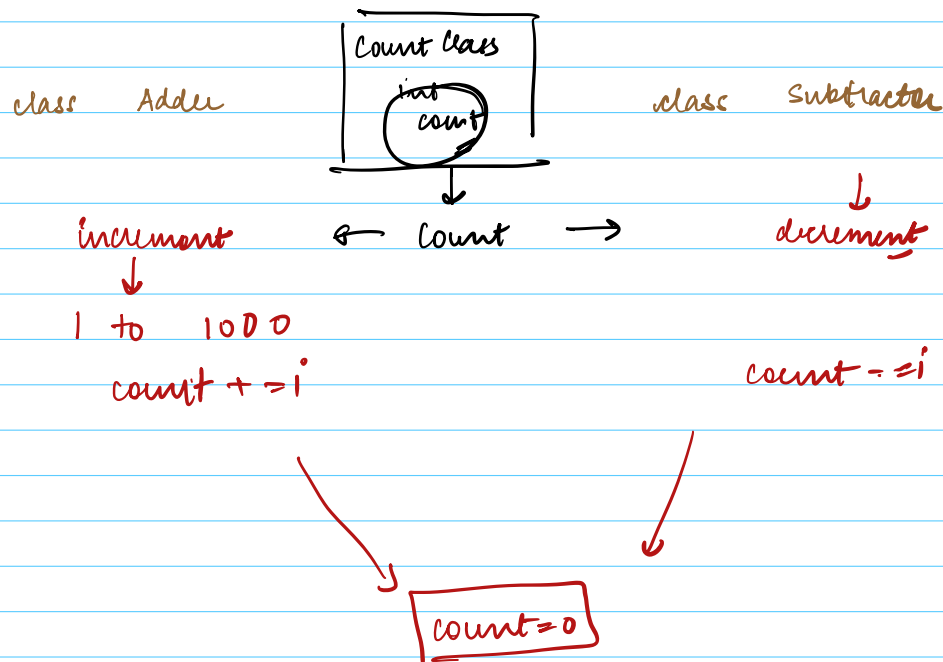 Count Class
class Adder
int
count
class Subtractor
increment
Count
decrement
1 to 1000
count + = i
count - = i
count = 0